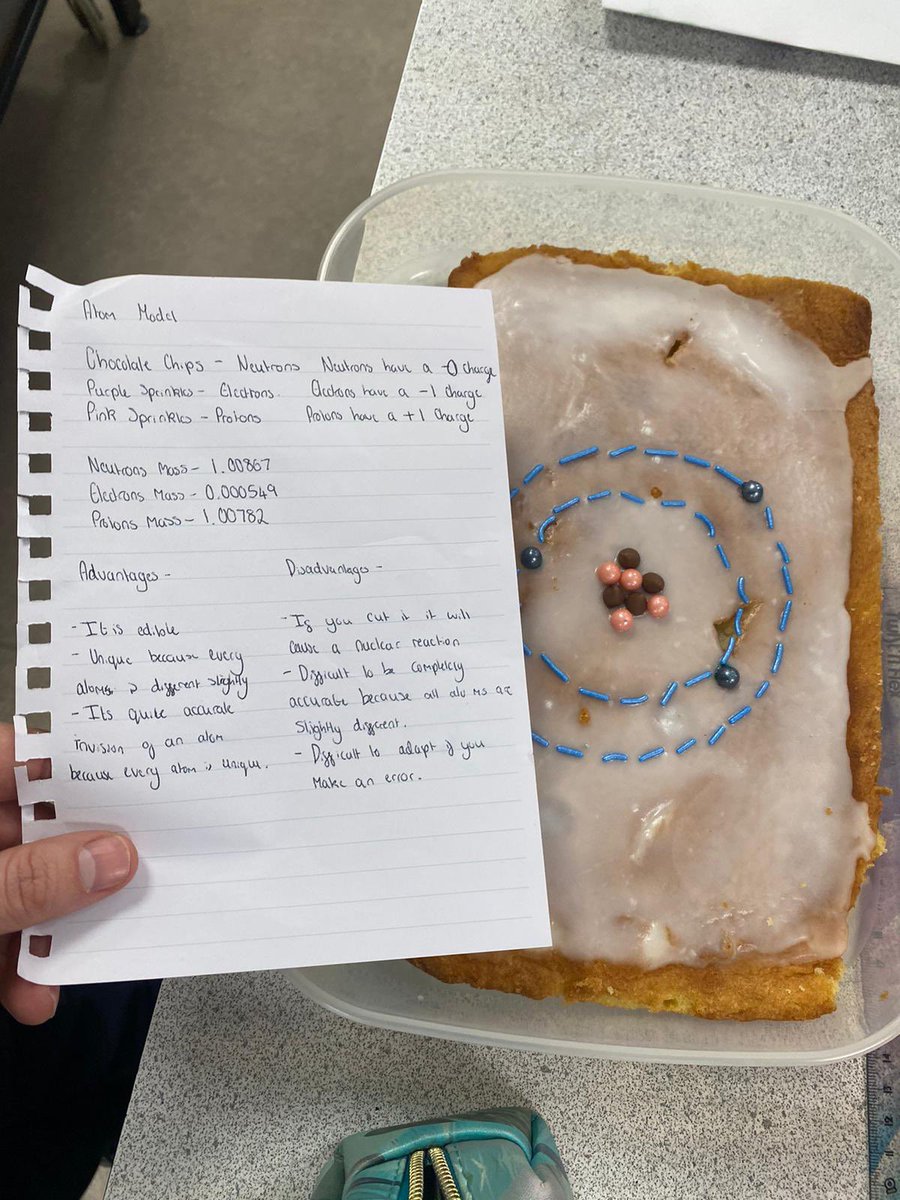 Atom Model
Chocolate Chips - Neutrons Neutrons have a -0 charge
Purple Sprinkles - Electrons. Electrons have a -1 charge
Pink Sprinkles - Protons Protons have a +1 charge
Neutrons Mass - 1.00867
Electrons Mass - 0.000549
Protons Mass - 1.00782
Advantages -
- It is edible
- Unique because every
atoms is different slightly
- Its quite accurate
invision of an atom
because every atom is unique.
Disadvantages -
- If you cut it it will
cause a nuclear reaction
- Difficult to be completely
accurate because all atoms are
slightly different.
- Difficult to adapt if you
Make an error.